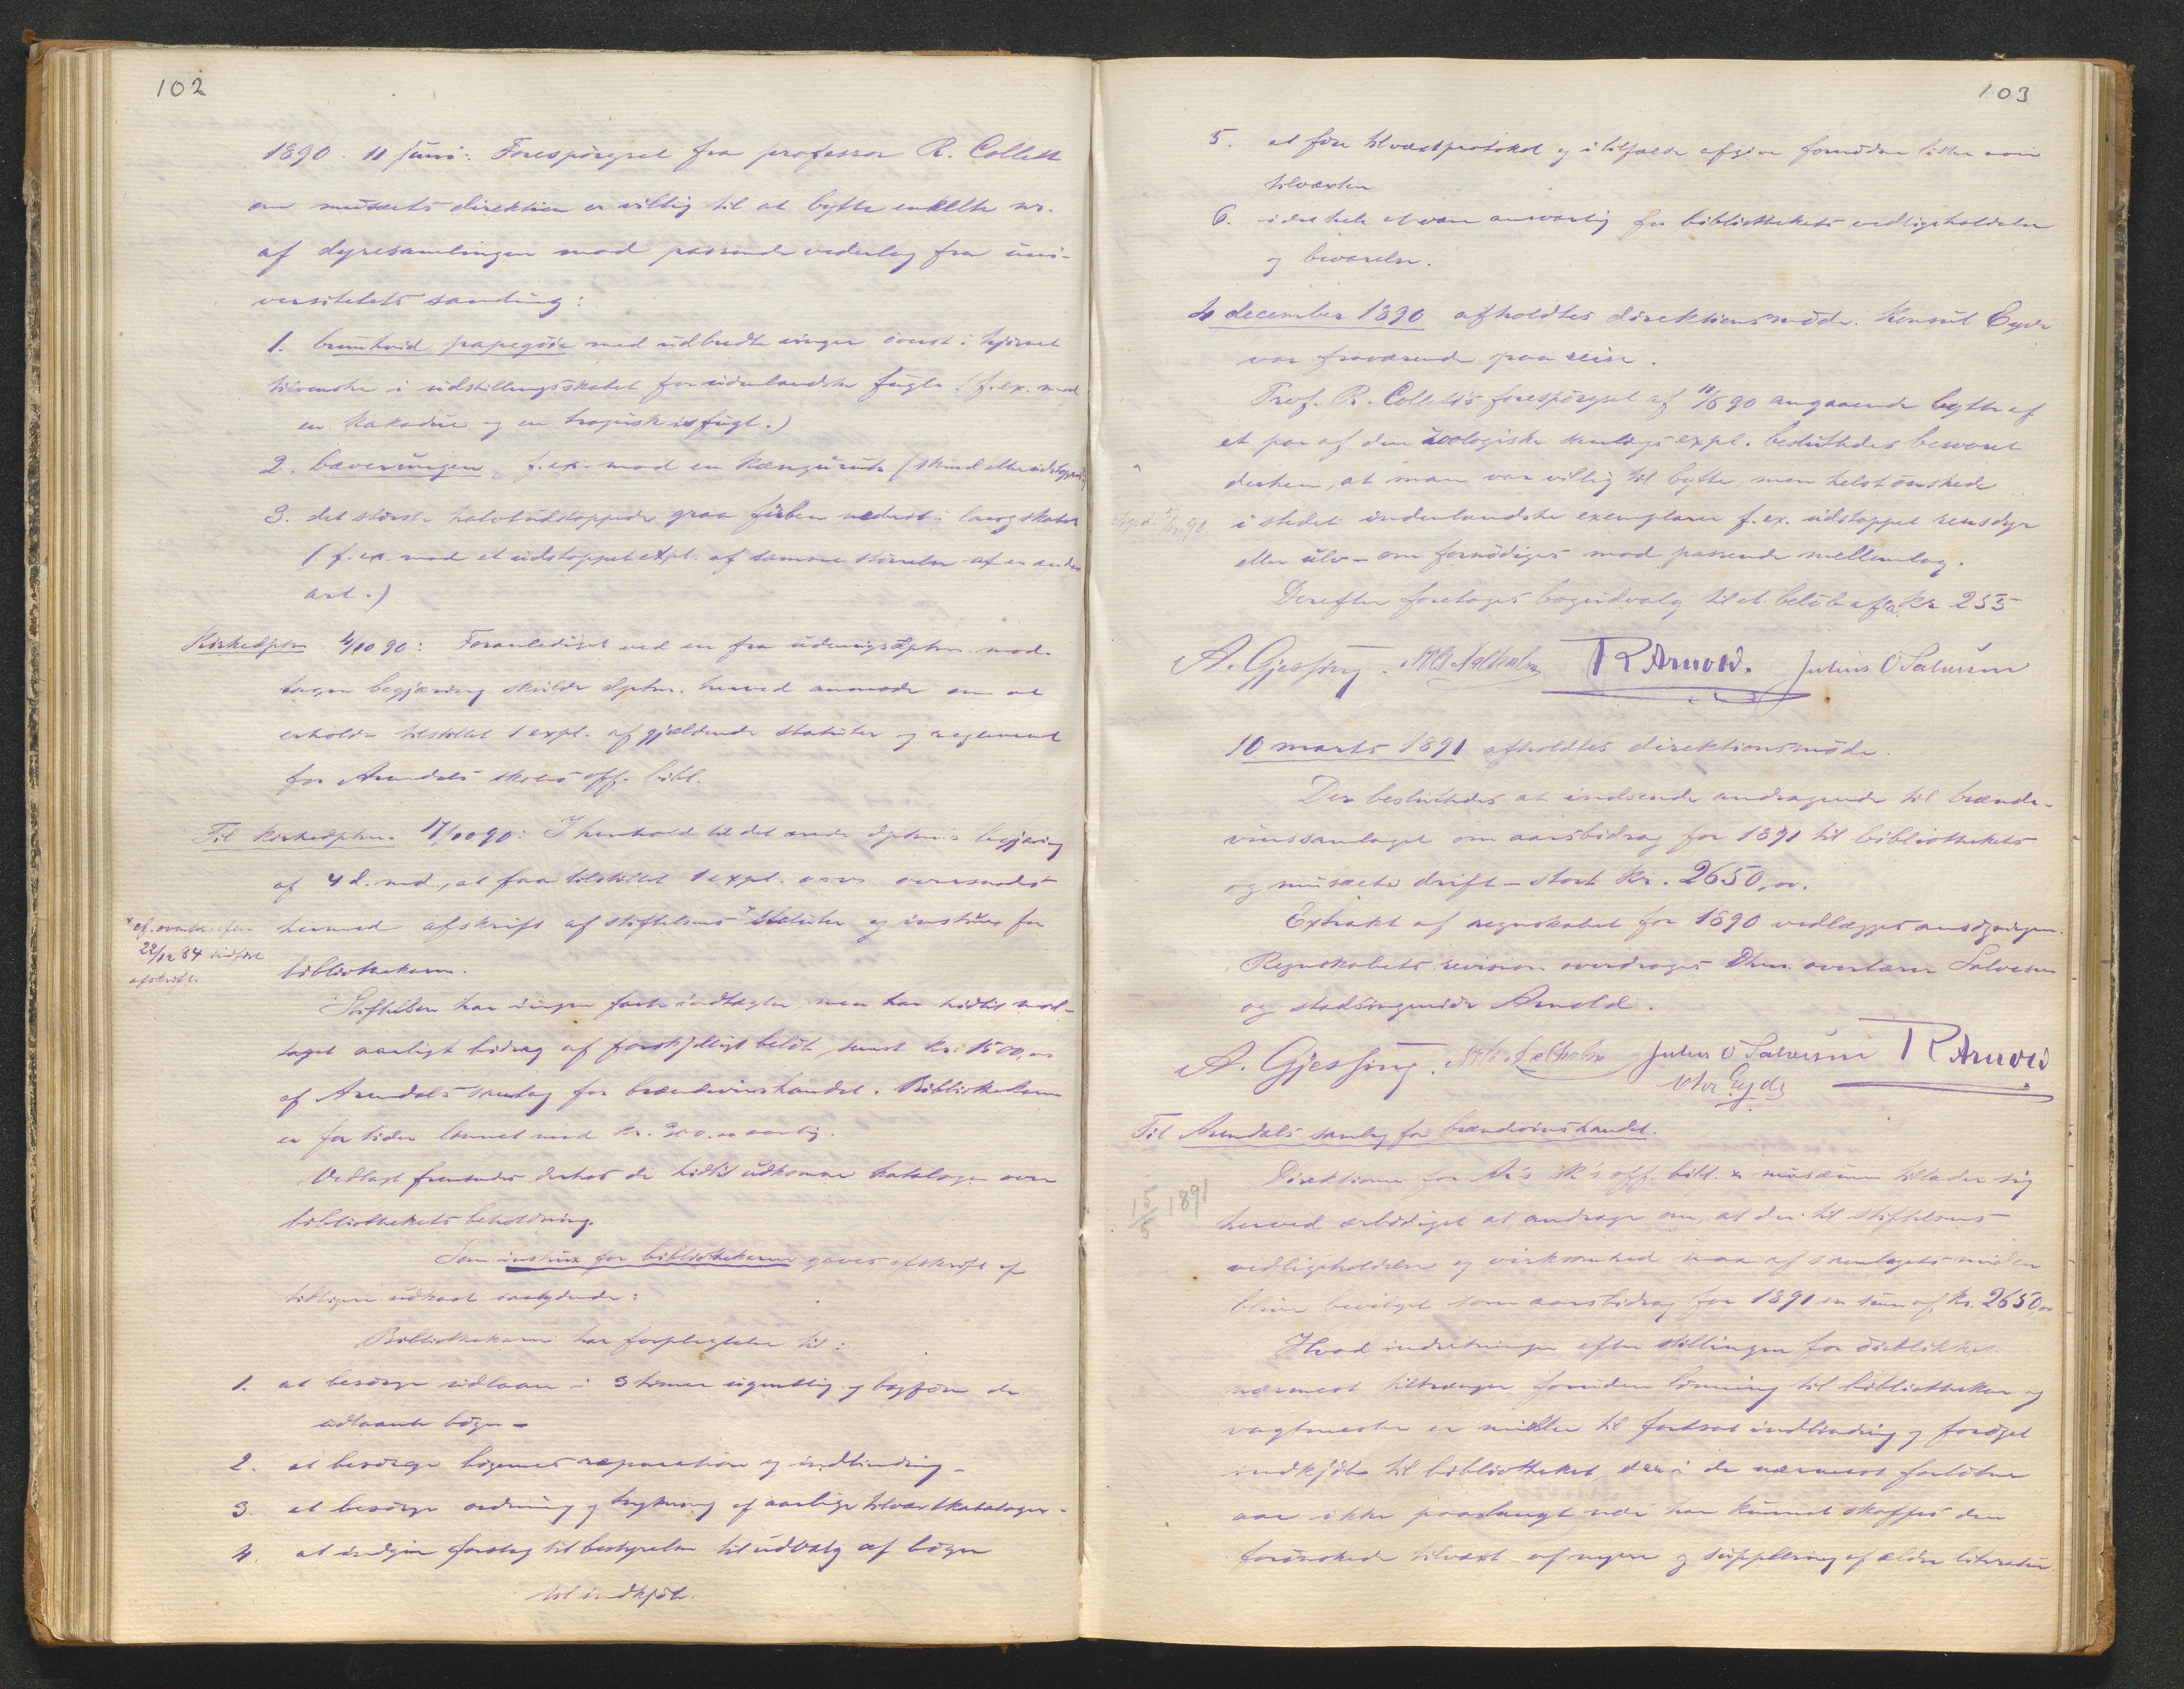 102
1890. 11 juni: Forespörgsel fra professor R. Collett
om musæets direktion er villig til at bytte enkelte nr.
af dyresamlingen mod passende vederlag fra uni-
versitetets samling:
1. brunhvid papegöie med udbredte vinger överst i hjörnet
tilvenstre i udstillingsskabet for udenlandske fugle (f.ex. mod
en kakadue og en tropisk isfugl.)
2. bæverungen, f.ex. mod en kænguru (skind eller udstoppet)
3. det störste halvtudstoppede graa nederst i
(f.ex. mod et udstoppet expl. af samme störrelse af en anden
art.)
Kirkedptm 4/10 90: Foranlediget ved en fra udenrigsdptm. mod-
tagen begjæring skulde dptm. herved anmode om at
erholde tilstillet 1 expl. af gjældende statuter og reglement
for Arendals skoles off. bibl.
Til kirkedptm. 17/10 90: I henhold til det ærede dptm's begjæring
af 4 d. md., at faa tilstillet 1 expl. osv. oversendes
hermed afskrift af stiftelsens x statuter og instrux for
bibliothekaren.
x cf.
22/12 84 indført
afskrift.
Stiftelsen har ingen faste indtægter men har hidtil mod-
taget aarligt bidrag af forskjelligt belöb, senest kr. 1500,00
af Arendals samlag for brændevinshandel. Bibliothekaren
er for tiden lönnet med kr. 300.00 aarlig.
Vedlagt fremsendes derhos de hidtil udkomne kataloger over
bibliothekets beholdning.
Som instrux for bibliothekaren gaves afskrift af
tidligere udkast saalydende:
Bibliothekaren har forpligtelse til:
1. at besörge udlaan i 3 timer ugentlig og bogföre de
udlaante böger -
2. at besörge bögernes reparation og indbinding -
3. at besörge ordning og trykning af aarlige tilvæxtkataloger -
4. at indgive forslag til bestyrelsen til udvalg af böger
til indkjöb.
103
5. at före tilvæxtprotokol og i tilfælde afgive fornödne lister over
tilvæxten
6. i det hele at være ansvarlig for bibliothekets vedligeholdelse
og bevarelse.
4 december 1890 afholdtes direktionsmöde. Konsul Eyde
var fraværende paa reise.
Prof. R. Collett's forespörgsel af 11/6 90 angaaende bytte af
et par af den zoologiske samlings expl. besluttedes besvaret
derhen, at man var villig til bytte, men helst önskede
i stedet indenlandske exemplarer f.ex. udstoppet rensdyr
eller ulv - om fornödiges mod passende mellemlag.
Derefter foretoges bogudvalg til et belöb af ca kr 255
A. Gjessing. R Arnold. Julius O Salvesen
10 marts 1891 afholdtes direktionsmöde.
Der besluttedes at indsende andragende til brænde-
vinssamlaget om aarsbidrag for 1891 til bibliothekets
og musæets drift - stort kr. 2650,00.
Extrakt af regnskabet for 1890 vedlægges ansögningen.
Regnskabets revision overdroges Dhrr. overlærer Salvesen
og stadsingeniör Arnold.
A. Gjessing. Julius O Salvesen R Arnold
Eyde
Til Arendals samlag for brændevinshandel.
15/5 1891
Direktionen for A's sk's off. bibl. & musæum tillader sig
herved ærbödigst at andrage om, at der til stiftelsens
vedligeholdelse og virksomhed maa af samlagets midler
blive bevilget som aarsbidrag for 1891 en sum af kr. 2650,00
Hvad indretningen efter stillingen for öieblikket
nærmest tiltrænger foruden lönning til bibliothekar og
vagtmester er midler til fortsat indbinding og foröget
indkjöb til bibliotheket, der i de nærmest forløbne
aar ikke paa langt nær har kunnet skaffes den
forönskede tilvæxt af nyere og supplering af ældre literatur